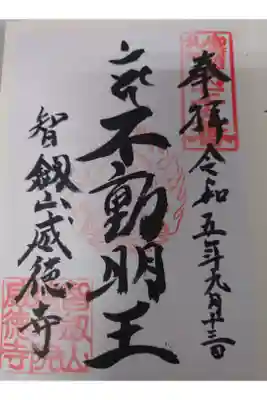 奉拝 令和五年九月廿三日
不動明王
智釼山威徳寺
智釼山
威徳寺